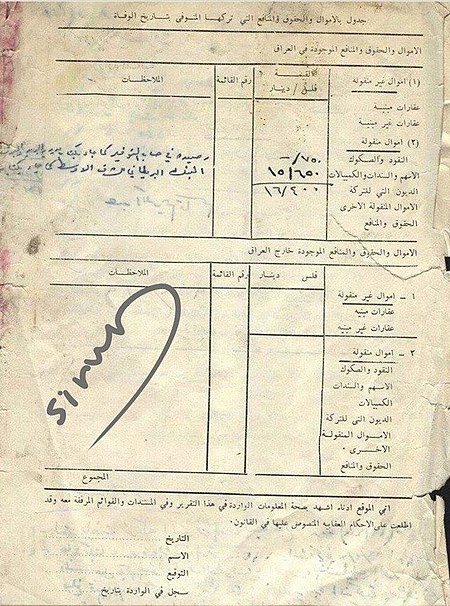 جدول بالاموال والحقوق والمنافع التي تركها المتوفى بتاريخ الوفاة
الاموال والحقوق والمنافع الموجودة في العراق
(١) اموال غير منقولة
القيمة
فلس / دينار
رقم القائمة
الملاحظات
عقارات مبنية
عقارات غير مبنية
(٢) اموال منقولة
النقود والصكوك
٧٥٠/-
رصيده في حساب التوفير كما جاء بكتاب
الاسهم والسندات والكمبيالات
١٥/٦٥٠
البنك البريطاني للشرق الاوسط
الديون التي للتركة
١٦/٤٠٠
الاموال المنقولة الاخرى
الحقوق والمنافع
الاموال والحقوق والمنافع الموجودة خارج العراق
فلس دينار
رقم القائمة
الملاحظات
١ - اموال غير منقولة
عقارات مبنيه
عقارات غير مبنيه
٢ - اموال منقولة
النقود والصكوك
الاسهم والسندات
الكمبيالات
الديون التي للتركة
الاموال المنقولة
الاخرى٠
الحقوق والمنافع
المجموع
sirwp
اني الموقع ادناه اشهد بصحة المعلومات الواردة في هذا التقرير وفي المستندات والقوائم المرفقة معه وقد
اطلعت على الاحكام العقابيه المنصوص عليها في القانون٠
التاريخ
الاسم
التوقيع
سجل في الواردة بتاريخ